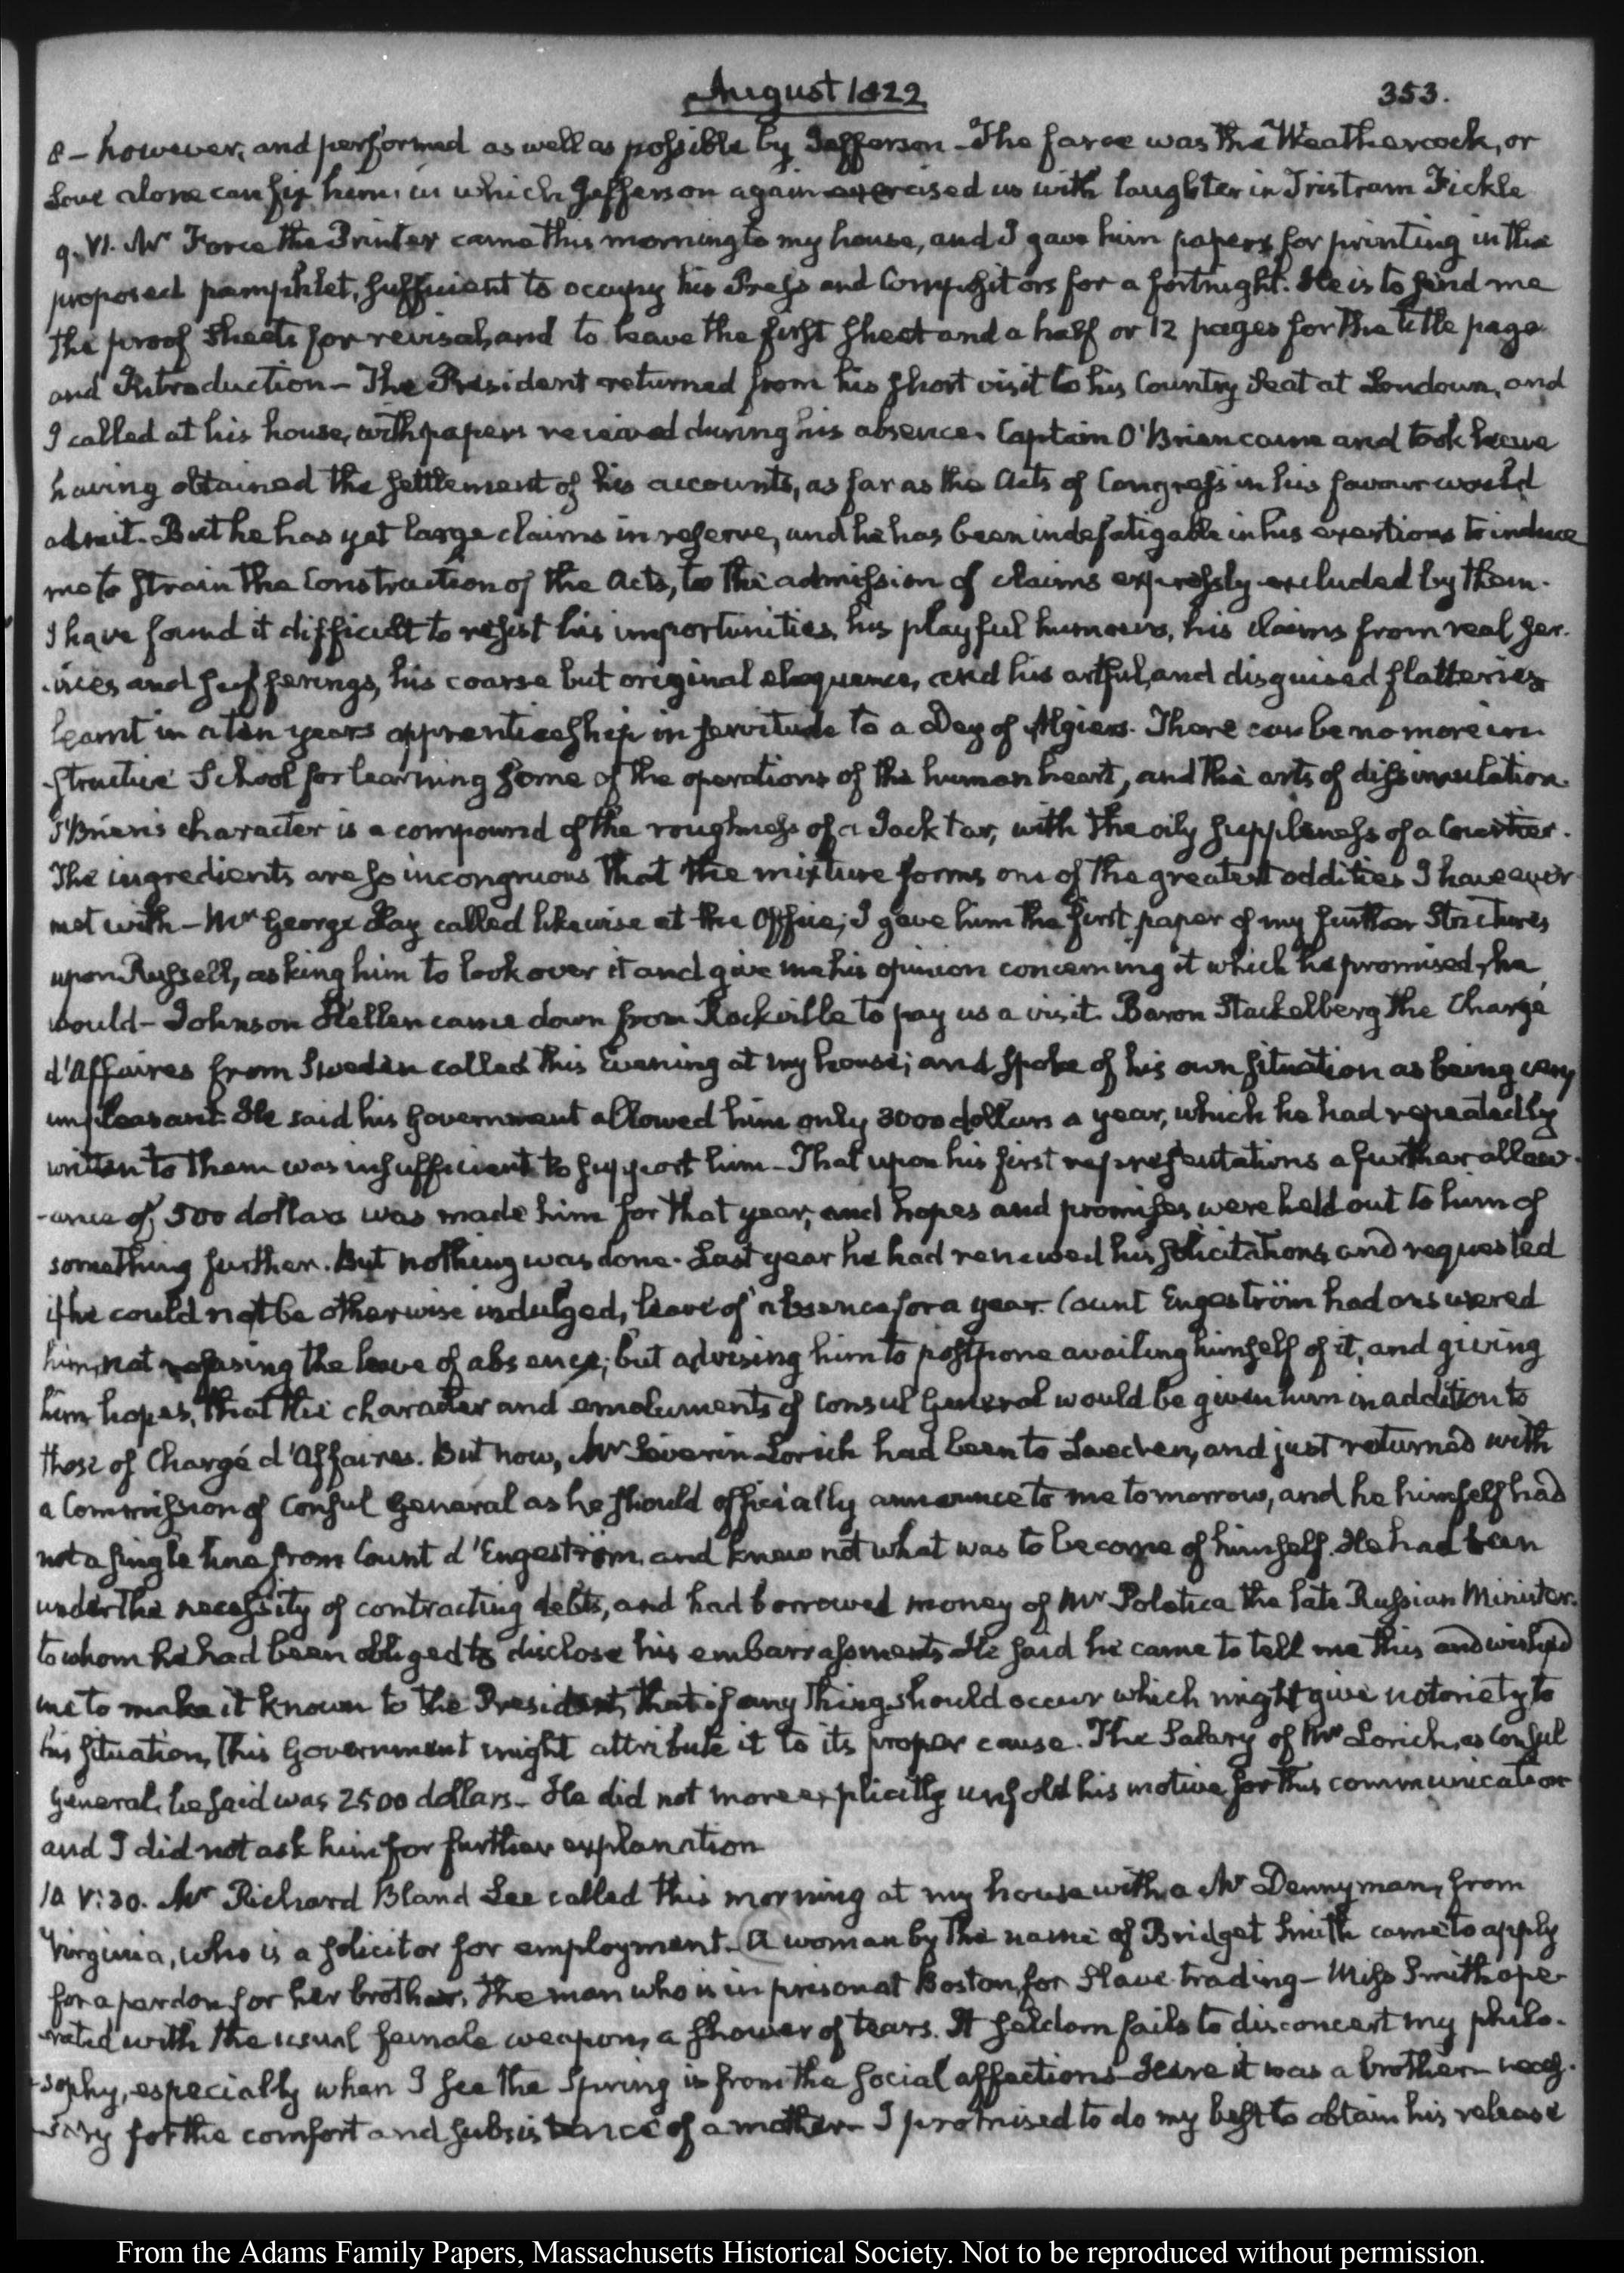 August 1822 353.
8 – however, and performed as well as possible by Jefferson – The farce was the Weathercock, or
Love alone can fix him, in which Jefferson again exercised us with laughter in Tristram Fickle
9. VI. Mr Force the Printer came this morning to my house, and I gave him papers for printing in the
proposed pamphlet, sufficient to occupy his Press and Compositors for a fortnight. He is to send me
the proof sheets for revisal, and to leave the first sheet and a half or 12 pages for the title page
and Introduction – The President returned from his short visit to his Country Seat at Loudoun, and
I called at his house, with papers received during his absence. Captain O'Brien came and took leave
having obtained the settlement of his accounts, as far as the Acts of Congress in his favour would
admit. But he has yet large claims in reserve, and he has been indefatigable in his exertions to induce
me to strain the Construction of the Acts, to the admission of claims expressly excluded by them.
I have found it difficult to resist his importunities, his playful humours, his claims from real ser-
-vices and sufferings, his coarse but original eloquence, and his artful, and disguised flatteries
learnt in a ten years apprenticeship in servitude to a Dey of Algiers. There can be no more in-
-structive School for learning some of the operations of the human heart, and the arts of dissimulation.
O'Brien's character is a compound of the roughness of a Jack tar, with the oily suppleness of a Courtier.
The ingredients are so incongruous that the mixture forms one of the greatest oddities I have ever
met with – Mr George Hay called likewise at the Office; I gave him the first paper of my further Strictures
upon Russell, asking him to look over it and give me his opinion concerning it which he promised he
would – Johnson Hellen came down from Rockville to pay us a visit. Baron Stackelberg the Chargé
d'Affaires from Sweden called this Evening at my house; and spoke of his own situation as being very
unpleasant. He said his Government allowed him only 3000 dollars a year, which he had repeatedly
written to them was insufficient to support him – That upon his first representations a further allow-
-ance of 500 dollars was made him for that year, and hopes and promises were held out to him of
something further. But nothing was done. Last year he had renewed his solicitations and requested
if he could not be otherwise indulged, leave of absence for a year. Count Engeström had answered
him, not refusing the leave of absence; but advising him to postpone availing himself of it, and giving
him hopes, that the character and emoluments of Consul General would be given him in addition to
those of Chargé d'Affaires. But now, Mr Severin Lorich had been to Sweden, and just returned with
a Commission of Consul General as he should officially announce to me tomorrow, and he himself had
not a single line from Count d'Engeström, and knew not what was to become of himself. He had been
under the necessity of contracting debts, and had borrowed money of Mr Poletica the late Russian Minister.
to whom he had been obliged to disclose his embarrassments. He said he came to tell me this and wished
me to make it known to the President, that if any thing should occur which might give notoriety to
his situation, this Government might attribute it to its proper cause. The Salary of Mr Lorich, as Consul
General, he said was 2500 dollars – He did not more explicitly unfold his motive for this communication
and I did not ask him for further explanation
10 V:30. Mr Richard Bland Lee called this morning at my house with a Mr Dennyman, from
Virginia, who is a solicitor for employment. A woman by the name of Bridget Smith came to apply
for a pardon for her brother, the man who is in prison at Boston, for Slave trading – Miss Smith ope-
-rated with the usual female weapon, a shower of tears. It seldom fails to disconcert my philo-
-sophy, especially when I see the Spring is from the social affections – Here it was a brother – neces-
-sary for the comfort and subsistence of a mother – I promised to do my best to obtain his release
From the Adams Family Papers, Massachusetts Historical Society. Not to be reproduced without permission.